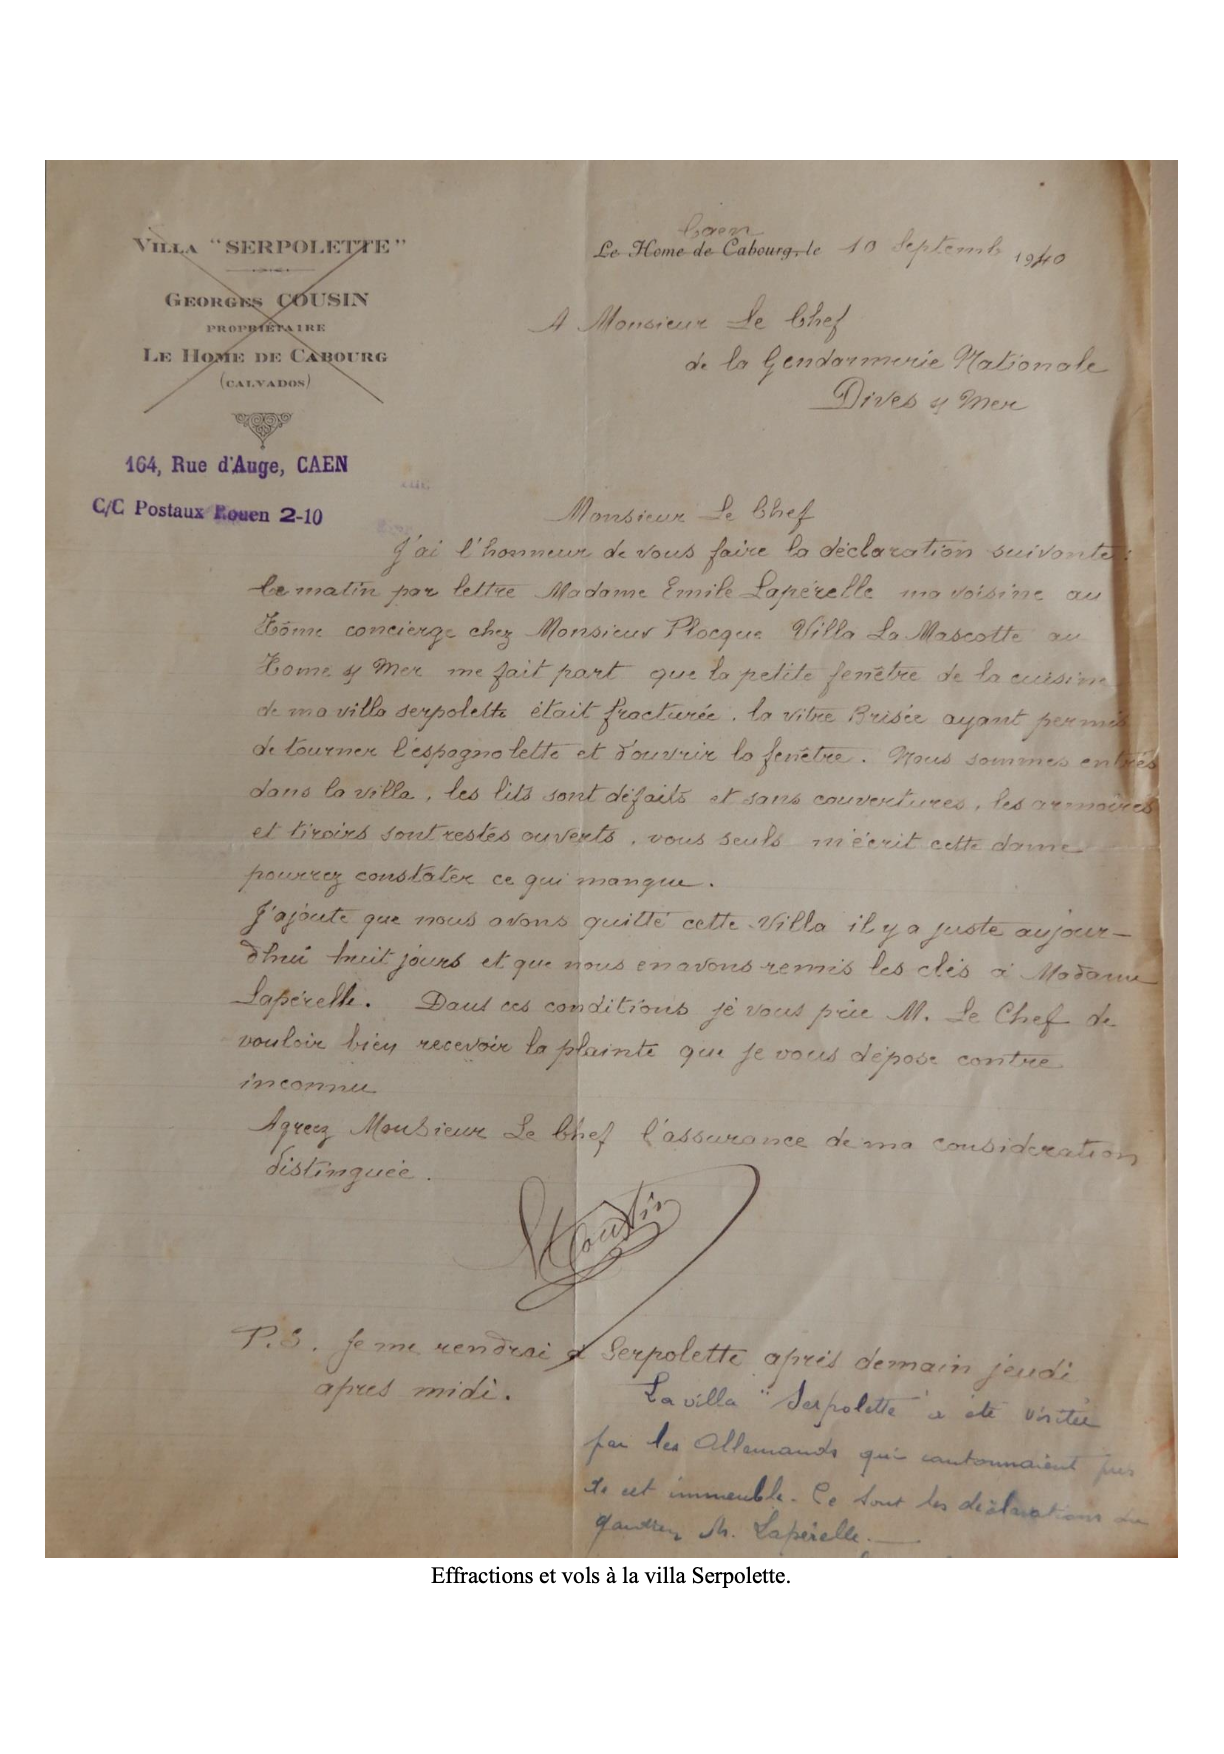 VILLA "SERPOLETTE"
GEORGES COUSIN
PROPRIÉTAIRE
LE HOME DE CABOURG
(CALVADOS)
164, Rue d'Auge, CAEN
C/C Postaux Rouen 2-10
Caen
Le Home de Cabourg, le 10 Septemb 1940
A Monsieur Le Chef
de la Gendarmerie Nationale
Dives s/ Mer
Monsieur Le Chef
J'ai l'honneur de vous faire la déclaration suivante :
Ce matin par lettre Madame Emile Lapérelle ma voisine au
Hôme concierge chez Monsieur Plocque Villa La Mascotte au
Home s/ Mer me fait part que la petite fenêtre de la cuisine
de ma villa serpolette était fracturée. la vitre Brisée ayant permis
de tourner l'espagnolette et d'ouvrir la fenêtre. Nous sommes entrés
dans la villa, les lits sont défaits et sans couvertures, les armoires
et tiroirs sont restés ouverts, vous seuls m'écrit cette dame
pourrez constater ce qui manque.
J'ajoute que nous avons quitté cette Villa il y a juste aujour-
d'hui huit jours et que nous en avons remis les clés à Madame
Lapérelle. Dans ces conditions je vous prie M. Le Chef de
vouloir bien recevoir la plainte que je vous dépose contre
inconnu
Agreez Monsieur Le Chef l'assurance de ma consideration
distinguée.
Cousin
P.S. Je me rendrai a Serpolette après demain jeudi
apres midi.
La villa "Serpolette" a été visitée
par les Allemands qui cantonnaient près
de cet immeuble. Ce sont les déclarations du
gardien M. Lapérelle.
Effractions et vols à la villa Serpolette.